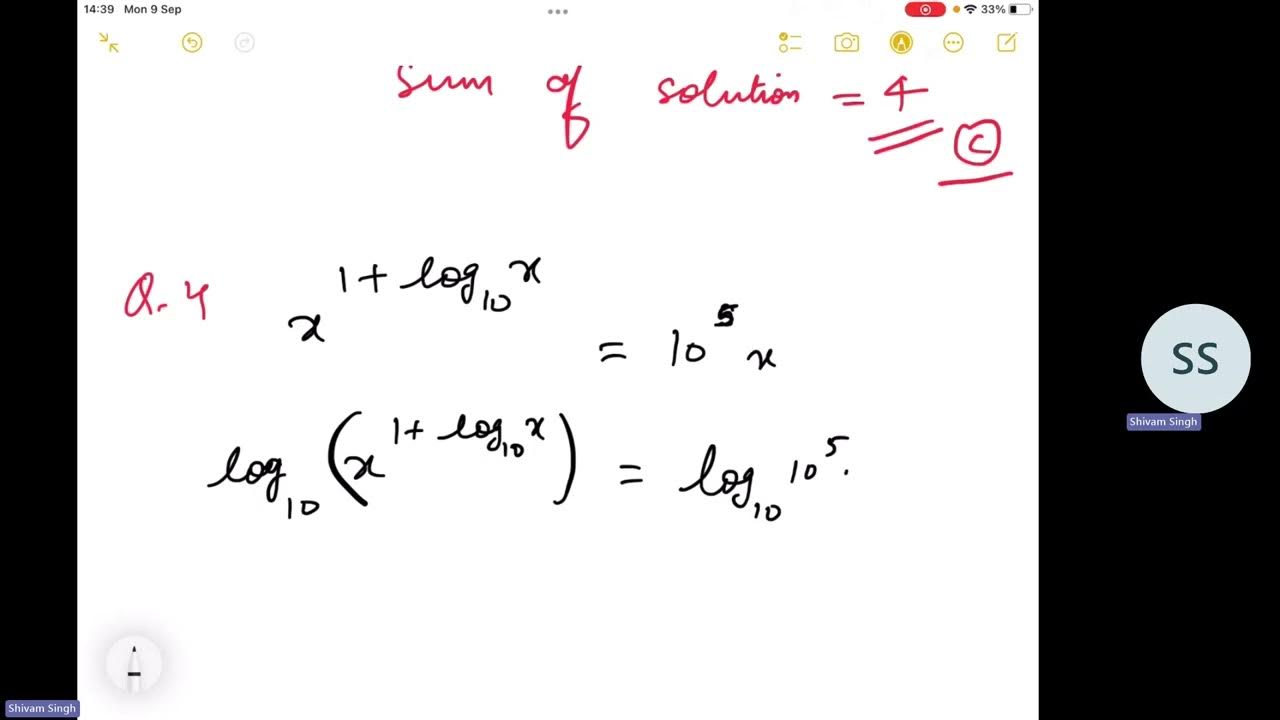 14:39 Mon 9 Sep
33%
Sum of solution = 4
C
Q. 4 x^{1 + log_{10} x} = 10^5 x
log_{10} (x^{1 + log_{10} x}) = log_{10} 10^5 .
SS
Shivam Singh
Shivam Singh